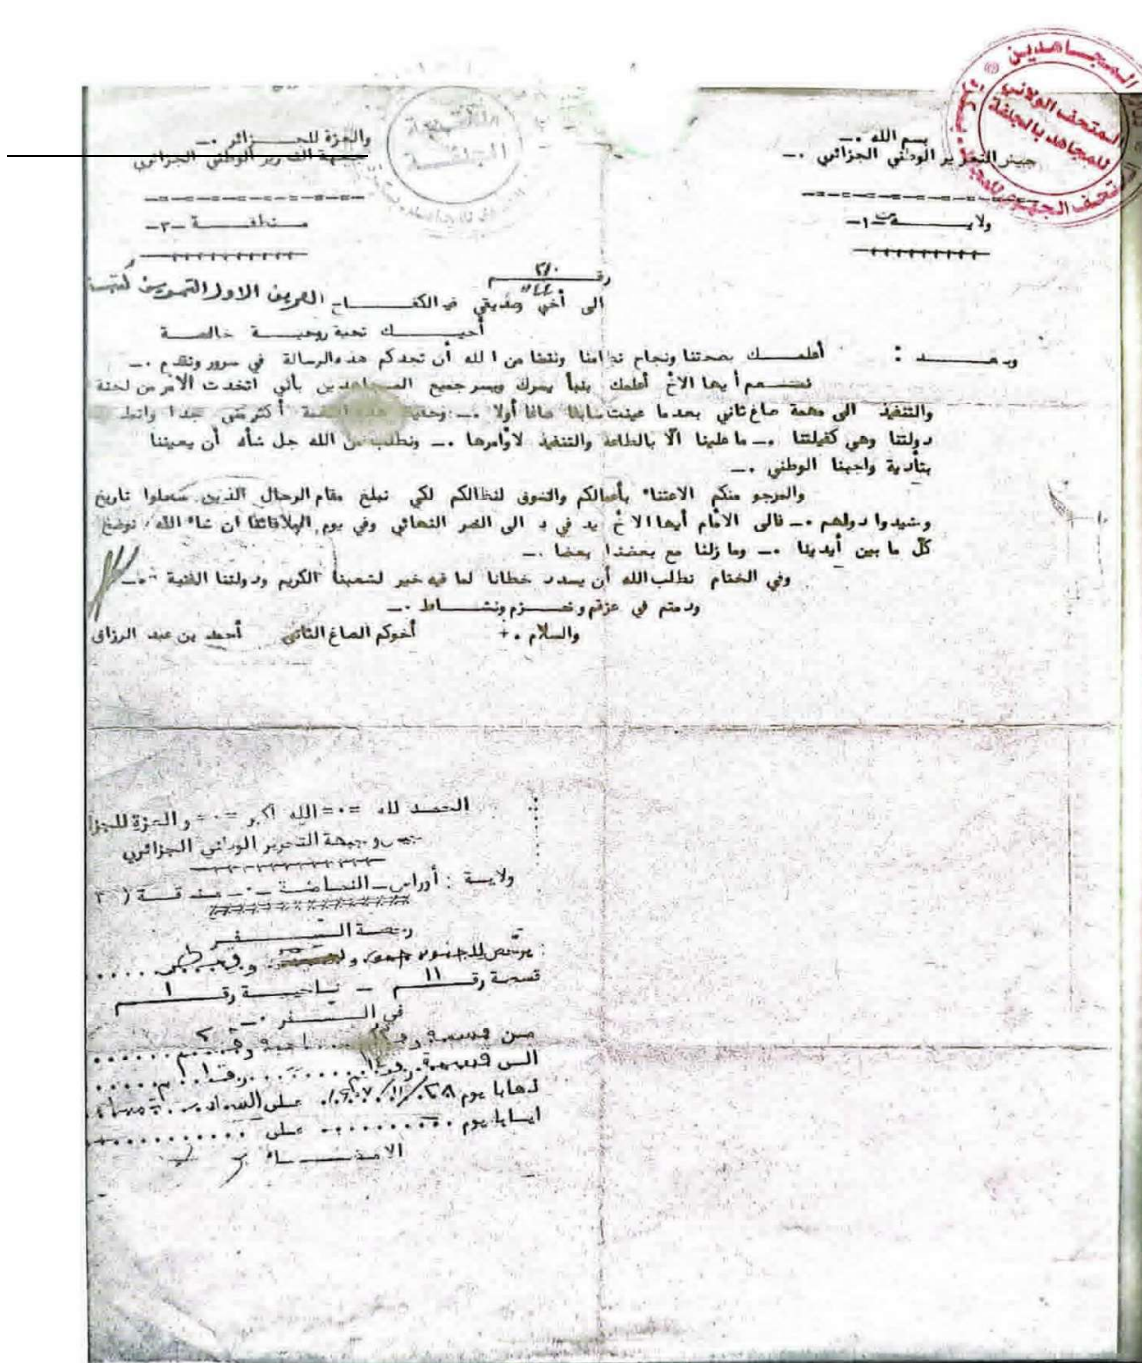 المتحف الولائي
للمجاهد بالجلفة
الجلفة
بسم الله ـ والعزة للجــزائر ـ
جيش التحرير الوطني الجزائري ـ جبهة التحرير الوطني الجزائري
ولايــة ـ١ـ منطقــة ـ٣ـ
رقــم
الى أخي وصديقي في الكفــاح العريف الاول
أحييــك تحية روحيــة خالصــة
وبعــد : أعلمــك بصحتنا ونجاح نظامنا ونتمنا من الله أن تجدكم هذه الرسالة في سرور وتقدم ـ
نعــم أيها الاخ أعلمك بنبأ يسرك ويسر جميع المجاهدين بأني اتخدت الأمر من لجنة
والتنفيذ الى مهمة صاغ ثاني بعدما عينت سابقا صاغا أولا ـ أكثر مني جدا
دولتنا وهي كفيلتنا ـ ما علينا الّا بالطاعة والتنفيذ لاوامرها ـ ونطلب من الله جل شأنه أن يعيننا
بتأدية واجبنا الوطني ـ
والمرجو منكم الاعتناء بأعمالكم والتفوق لنظالكم لكي نبلغ مقام الرجال الذين سجلوا تاريخ
وشيدوا دولهم ـ فالى الامام أيها الاخ يد في يد الى النصر النهائي وفي يوم الملاقاتنا ان شاء الله نوضح
كلّ ما بين أيدينا ـ وما زلنا مع بعضنا بعضا ـ
وفي الختام نطلب الله أن يسدد خطانا لما فيه خير لشعبنا الكريم ودولتنا الفتية ـ
ودمتم في عزم وحــزم ونشــاط ـ
والسلام + أخوكم الصاغ الثاني أحمد بن عبد الرزاق
الحمد لله =٠= الله أكبر =٠= والعزة للجزا
جيش وجبهة التحرير الوطني الجزائري
ولايــة : أوراس ـ النمامشــة ـ٠ـ منطقــة (٣
رخصة الســفر
يرخص للجنود
قسمة رقــم ١١ ـ ناحيــة رقــم ١
في الســفر ـ
من قسمة رقم
الى قسمة رقم
ذهابا يوم على
ايابا يوم .......... على ..........
الامضــاء